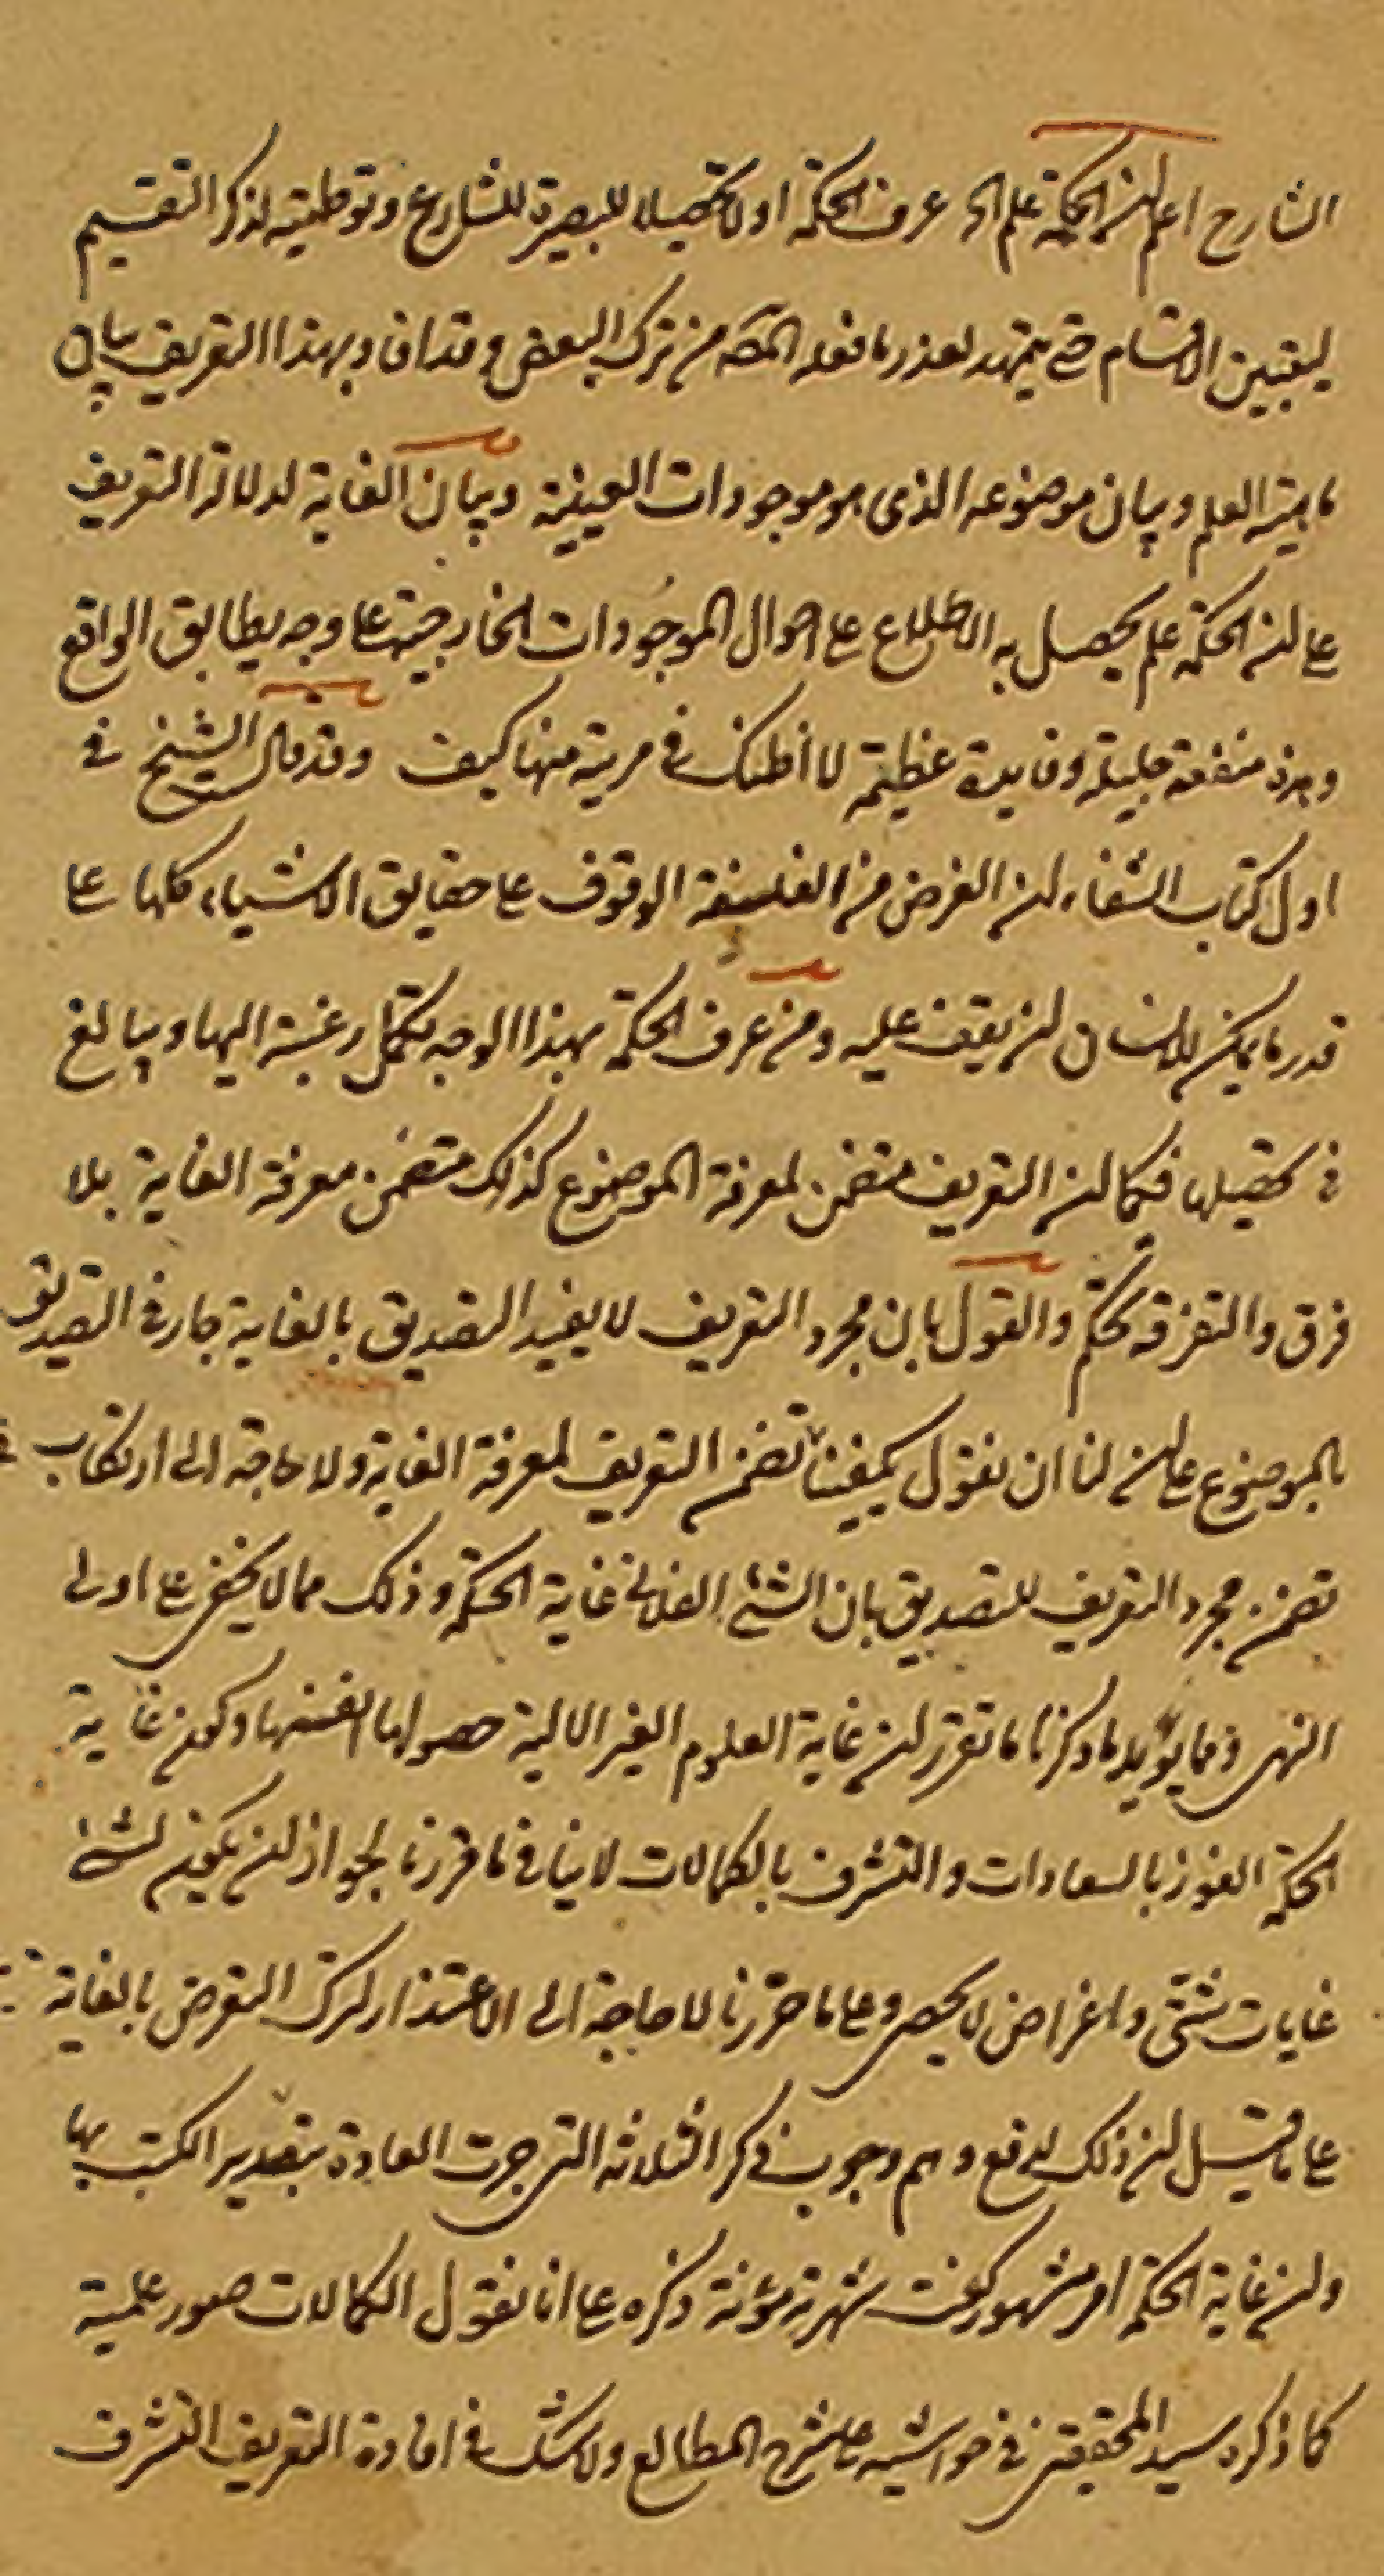 الشارح اعلم ان الحكمة علم الى عرف الحكمة اولا تحصيلا للبصيرة للشارع وتوطئة لذكر التقسيم
ليتبين الاقسام حتى يتمهد لعذر ما فعله المصه من ترك البعض وقد افاد بهذا التعريف بيان
ماهية العلم وبيان موضوعه الذى هو موجودات العينية وبيان الغاية لدلالة التعريف
على ان الحكمة علم يحصل به الاطلاع على احوال الموجودات الخارجية على وجه يطابق الواقع
وهذه منفعة جليلة وفايدة عظيمة لا أظنك فى مرية منها كيف وقد قال الشيخ فى
اول كتاب الشفاء ان الغرض من الفلسفة الوقوف على حقايق الاشياء كلها على
قدر ما يمكن للانسان ان يقف عليه ومن عرف الحكمة بهذا الوجه تكمل رغبته اليها ويبالغ
فى تحصيلها فكما ان التعريف متضمن لمعرفة الموضوع كذلك متضمن معرفة الغاية بلا
فرق والتفرقة تحكم والقول بان مجرد التعريف لا يفيد التصديق بالغاية جار فى التصديق
بالموضوع على ان لنا ان نقول يكفينا تضمن التعريف لمعرفة الغاية ولا حاجة الى ارتكاب
تضمن مجرد التعريف للتصديق بان الشئ الفلانى غاية الحكمة وذلك مما لا يخفى على اولى
النهى ومما يؤيد ما ذكرنا ما تقرر ان غاية العلوم الغير الالية حصولها انفسها وكون غاية
الحكمة الفوز بالسعادات والتشرف بالكمالات لا ينافى ما قررنا لجواز ان يكون لشئ
غايات شتى واغراض لا يحصى وعلى ما حررنا لا حاجة الى الاعتذار لترك التعرض بالغاية
على ما قيل ان ذلك لدفع وهم وجوب ذكر الثلاثة التى جرت العادة بتصدير الكتب بها
وان غاية الحكمة امر مشهور كفت شهرته مؤنة ذكره على انا نقول الكمالات صور علمية
كما ذكره سيد المحققين فى حواشيه على شرح المطالع ولا شك فى افادة التعريف التشرف